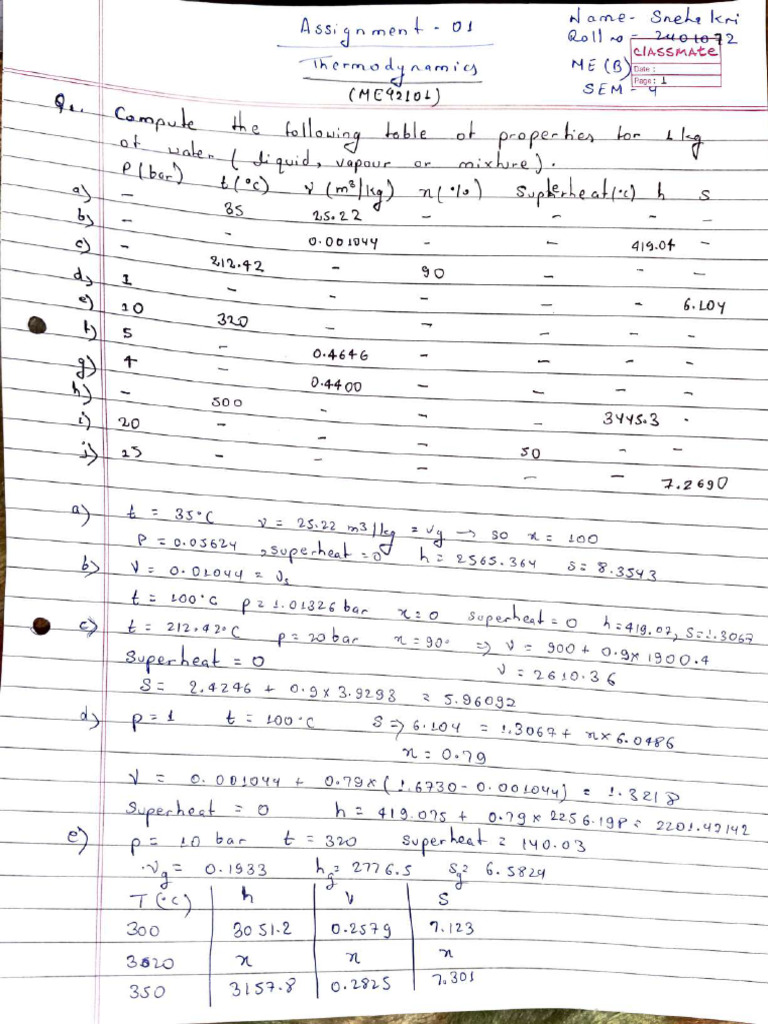 Assignment - 01
Name - Sneha kri
Roll no - 2401072
Thermodynamics
ME (B)
CLASSMATE
Date :
Page : 1
(ME92101)
SEM - 4
Q1. Compute the following table of properties for 1 kg
of water ( liquid, vapour or mixture ).
P(bar) t(°C) v (m³/kg) x(%) Superheat(°C) h s
a) - 35 25.22 - - - -
b) - - 0.001044 - - 419.04 -
c) - 212.42 - 90 - - -
d) 1 - - - - - 6.104
e) 10 320 - - - - -
f) 5 - 0.4646 - - - -
g) 4 - 0.4400 - - - -
h) - 500 - - - 3445.3 -
i) 20 - - - 50 - -
j) 15 - - - - - 7.2690
a) t = 35°C v = 25.22 m3/kg = vg → so x = 100
P = 0.05624 , superheat = 0 h = 2565.364 s = 8.3543
b) v = 0.01044 = vs
t = 100°C p = 1.01326 bar x = 0 superheat = 0 h = 419.07, s = 1.3067
c) t = 212.42°C p = 20 bar x = 90° ⇒ v = 900 + 0.9 × 1900.4
Superheat = 0 v = 2610.36
S = 2.4246 + 0.9 × 3.9293 = 5.96092
d) p = 1 t = 100°C s ⇒ 6.104 = 1.3067 + x × 6.0486
x = 0.79
v = 0.001044 + 0.79 × ( 1.6730 - 0.001044) = 1.3218
Superheat = 0 h = 419.075 + 0.79 × 2256.198 = 2201.42142
e) p = 10 bar t = 320 superheat = 140.03
vg = 0.1933 hg = 2776.5 sg = 6.5829
T(°C) h v s
300 3051.2 0.2579 7.123
3020 x x x
350 3157.8 0.2825 7.301